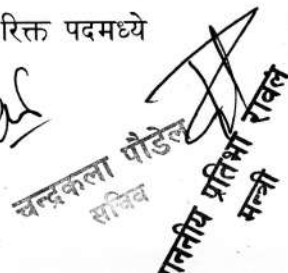 रिक्त पदमध्ये
चन्द्रकला पौडेल
सचिव
माननीय प्रतिभा रावल
मन्त्री